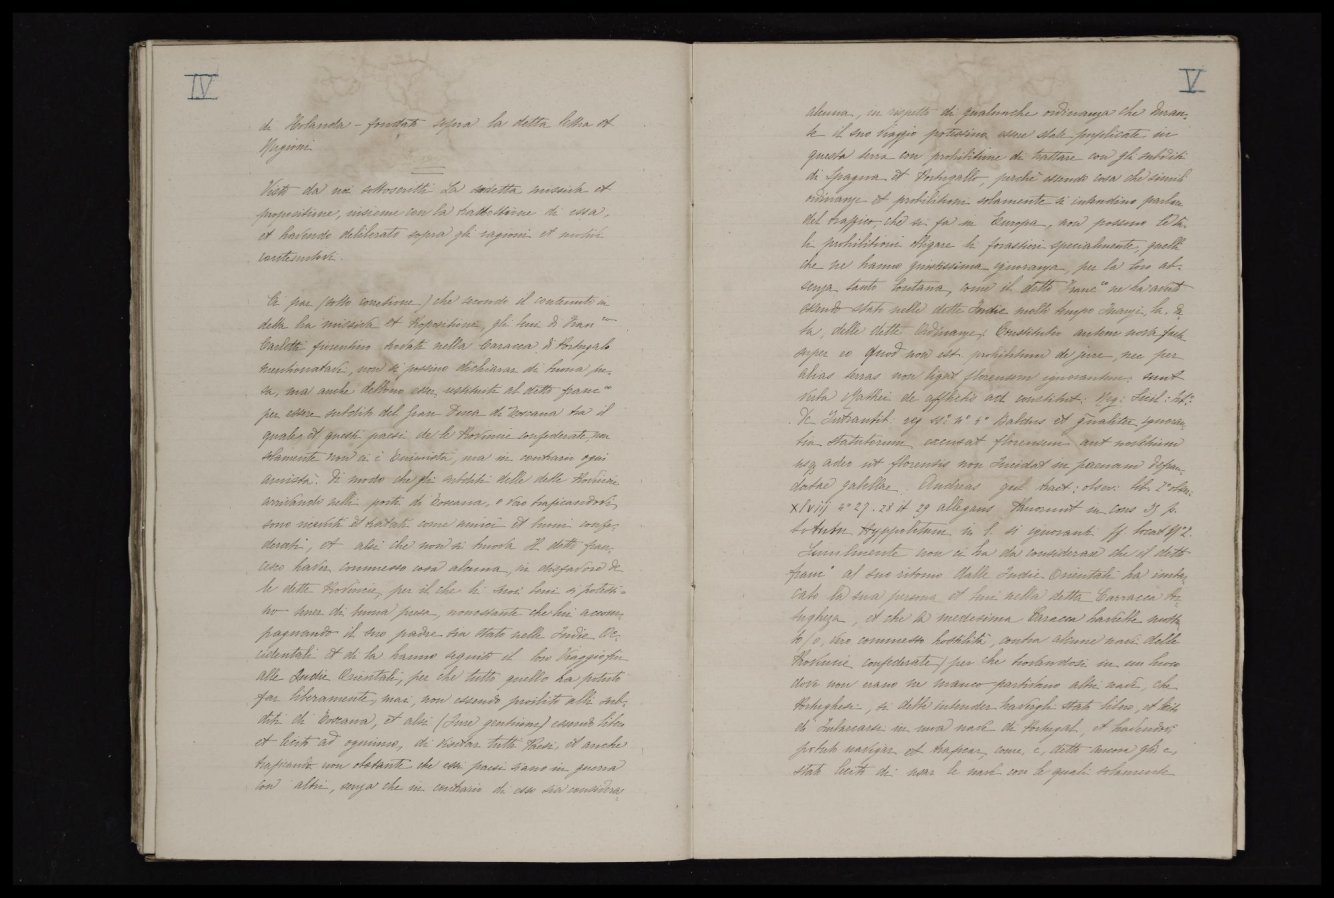 IV
di Holanda - fondata sopra la detta lettera et
Ragioni
Visto da noi sottoscritti La detta missiva et
propositione, insieme con la traditione di essa,
et havendo deliberato sopra gli ragioni et motivi
contenutovi.
Ce par (sotto corretione) che secondo il contenuto in
detta lra missiva et propositione, gli beni di Franco
Carletti fiorentino trovati nella Caracca di Portogalo
mentionatavi, non si possino dichiarar di buona pre-
sa, ma anche debbono esser restituiti al detto Franco
per essere subdito del gran Duca di Toscana tra il
quale et questi paesi de le Provincie confederate, non
solamente non ci è inimista, ma in contrario ogni
amista. Di modo che gli subditi delle dette Provincie
arrivando nelli porti di Toscana, o vero traficandovi,
sono ricevuti et trattati come amici et buoni confe-
derati, et alsi che non si truova Il detto Fran-
cesco haver commesso cosa alcuna, in disfavore de
le dette Provincie, per il che li suoi beni si potessi-
no tener di buona presa, nonostante che lui accom-
pagnando il suo padre sia stato nelle Indie Oc-
cidentali et di la hanno seguito il loro Viaggio fin
alle Indie Orientali, per che tutto quello ha potuto
far liberamente, mai, non essendo proibito alli sub-
diti di Toscana, et alsi (Jure gentium) essendo libero
et licito ad ogniuno, di visitar tutti Paesi, et anche
traficando non obstante che essi paesi siano in guerra
con altri, senza che in contrario di esso sia considera-
V
alcuna, in rispetto di qualunche ordinanza che duran-
te il suo viaggio potessino essere state publicate in
questa terra con prohibitione di trattare con gli subditi
di Spagna et Portogallo, perchè essendo cosa che simili
ordinanze et prohibitioni solamente si intendino parlar
del traffico, che si fa in Europa, non possono tal
le prohibitioni obligare li forastieri specialmente, quelli
che ne hanno giustissima ignoranza, per la loro ab-
senza tanto lontana, come il detto Franco ne ha avuto
essendo stato nelle dette Indie molto tempo
delle dette Ordinanze; Constitutio autem nova facta
super eo quod non est prohibitum de jure, nec per
alias terras non ligat florensem ignorantem: sunt
verba
statutorum excusat florensem
adeo ut florensis non Incidat in poenam defrau-
datae gabellae. Andreas Gail tract: obser: lib. 2 obser:
xlviij no 27. 28 et 29 allegans
Hyppolitum in l. si ignoranti ff locat
Similmente non ci ha da considerare che il detto
Franco al suo ritorno dalle Indie Orientali ha imbar-
cato la sua persona et beni nella detta Carracca Por-
tughesa, et che la medesima Caracca havesse mosso
o, vero commesso hostilità, contra alcune navi delle
Provincie confederate) per che trovandosi in un luoco
dove non erano ne manco partivano altre navi, che
Portughesi, si debbe intender
Imbarcarsi in una nave di Portugal, et havendo
potuto navigar et traficar, come, è, detto ancora gli è,
stato licito di usar le navi con le quali solamente